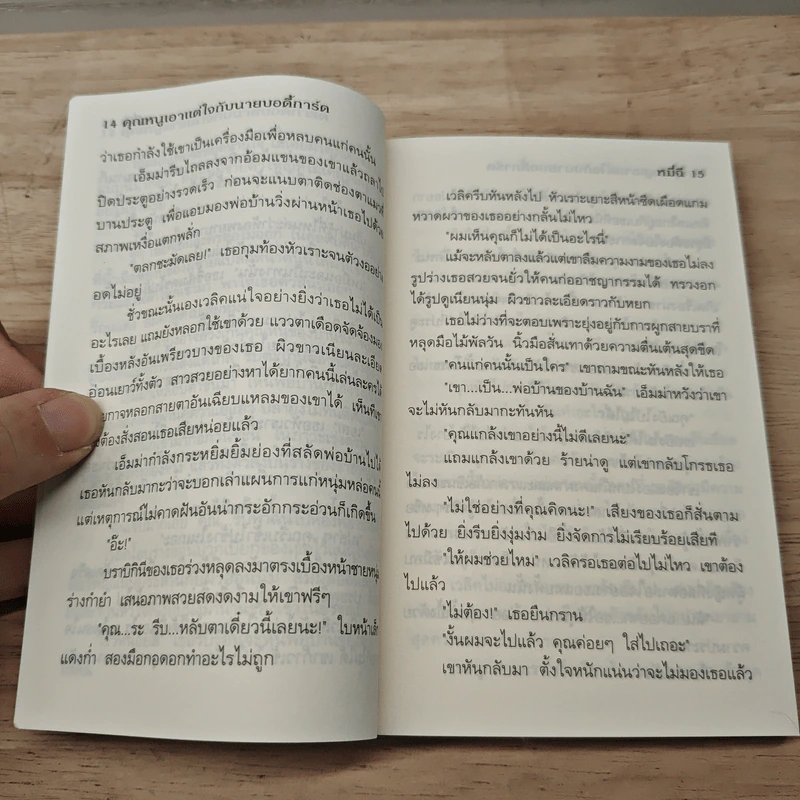 14 คุณหนูเอาแต่ใจกับนายบอดี้การ์ด
ว่าเธอกำลังใช้เขาเป็นเครื่องมือเพื่อหลบคนแก่คนนั้น
เอ็มม่ารีบไถลลงจากอ้อมแขนของเขาแล้วถลาไป
ปิดประตูอย่างรวดเร็ว ก่อนจะแนบตาติดช่องตาแมว
บานประตู เพื่อแอบมองพ่อบ้านวิ่งผ่านหน้าเธอไปด้วย
สภาพเหงื่อแตกพลั่ก
"ตลกชะมัดเลย!" เธอกุมท้องหัวเราะจนตัวงออย่าง
อดไม่อยู่
ชั่วขณะนั้นเองเวลิคแน่ใจอย่างยิ่งว่าเธอไม่ได้เป็น
อะไรเลย แถมยังหลอกใช้เขาด้วย แววตาเดือดจัดจ้องมอง
เบื้องหลังอันเพรียวบางของเธอ ผิวขาวเนียนละเอียด
อ่อนเยาว์ทั้งตัว สาวสวยอย่างหาได้ยากคนนี้เล่นละครได้
กาจหลอกสายตาอันเฉียบแหลมของเขาได้ เห็นที
ต้องสั่งสอนเธอเสียหน่อยแล้ว
เอ็มม่ากำลังกระหยิ่มยิ้มย่องที่สลัดพ่อบ้านไปได้
เธอหันกลับมากะว่าจะบอกเล่าแผนการแก่หนุ่มหล่อคนนี้
แต่เหตุการณ์ไม่คาดฝันอันน่ากระอักกระอ่วนก็เกิดขึ้น
"อ๊ะ!"
บราบิกินีของเธอร่วงหลุดลงมาตรงเบื้องหน้าชายหนุ่ม
ร่างกำยำ เสนอภาพสวยสดงดงามให้เขาฟรีๆ
"คุณ...ระ รีบ...หลับตาเดี๋ยวนี้เลยนะ!" ใบหน้าเล็ก
แดงก่ำ สองมือกอดอกทำอะไรไม่ถูก
หมี่นี 15
เวลิครีบหันหลังไป หัวเราะเยาะสีหน้าซีดเผือดแกม
หวาดผวาของเธออย่างกลั้นไม่ไหว
"ผมเห็นคุณก็ไม่ได้เป็นอะไรนี่"
แม้จะหลับตาลงแล้วแต่เขาลืมความงามของเธอไม่ลง
รูปร่างเธอสวยจนยั่วให้คนก่ออาชญากรรมได้ ทรวงอก
ได้รูปดูเนียนนุ่ม ผิวขาวละเอียดราวกับหยก
เธอไม่ว่างที่จะตอบเพราะยุ่งอยู่กับการผูกสายบราที่
หลุดมือไม้พัลวัน นิ้วมือสั่นเทาด้วยความตื่นเต้นสุดขีด
"คนแก่คนนั้นเป็นใคร" เขาถามขณะหันหลังให้เธอ
"เขา...เป็น...พ่อบ้านของบ้านฉัน" เอ็มม่าหวังว่าเขา
จะไม่หันกลับมากะทันหัน
"คุณแกล้งเขาอย่างนี้ไม่ดีเลยนะ"
แถมแกล้งเขาด้วย ร้ายน่าดู แต่เขากลับโกรธเธอ
ไม่ลง
"ไม่ใช่อย่างที่คุณคิดนะ!" เสียงของเธอก็สั่นตาม
ไปด้วย ยิ่งรีบยิ่งงุ่มง่าม ยิ่งจัดการไม่เรียบร้อยเสียที
"ให้ผมช่วยไหม" เวลิครอเธอต่อไปไม่ไหว เขาต้อง
ไปแล้ว
"ไม่ต้อง!" เธอยืนกราน
"งั้นผมจะไปแล้ว คุณค่อยๆ ใส่ไปเถอะ"
เขาหันกลับมา ตั้งใจหนักแน่นว่าจะไม่มองเธอแล้ว